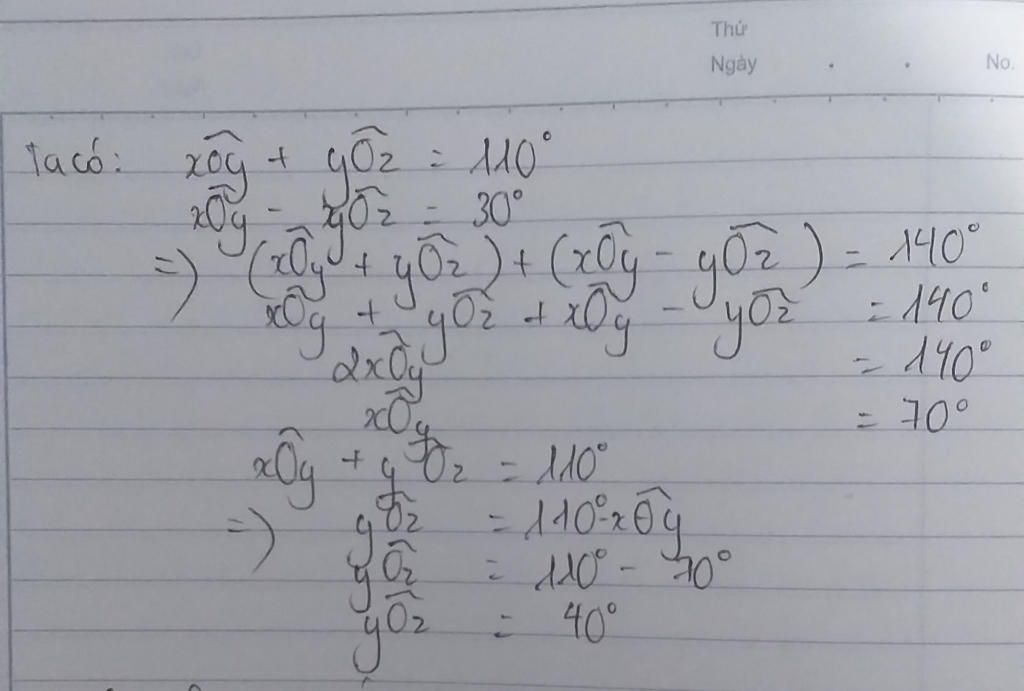 Thứ
Ngày . . No.
Ta có: xÔy + yÔz = 110°
xÔy - yÔz = 30°
=> (xÔy + yÔz) + (xÔy - yÔz) = 140°
xÔy + yÔz + xÔy - yÔz = 140°
2xÔy = 140°
xÔy = 70°
xÔy + yÔz = 110°
=> yÔz = 110° - xÔy
yÔz = 110° - 70°
yÔz = 40°